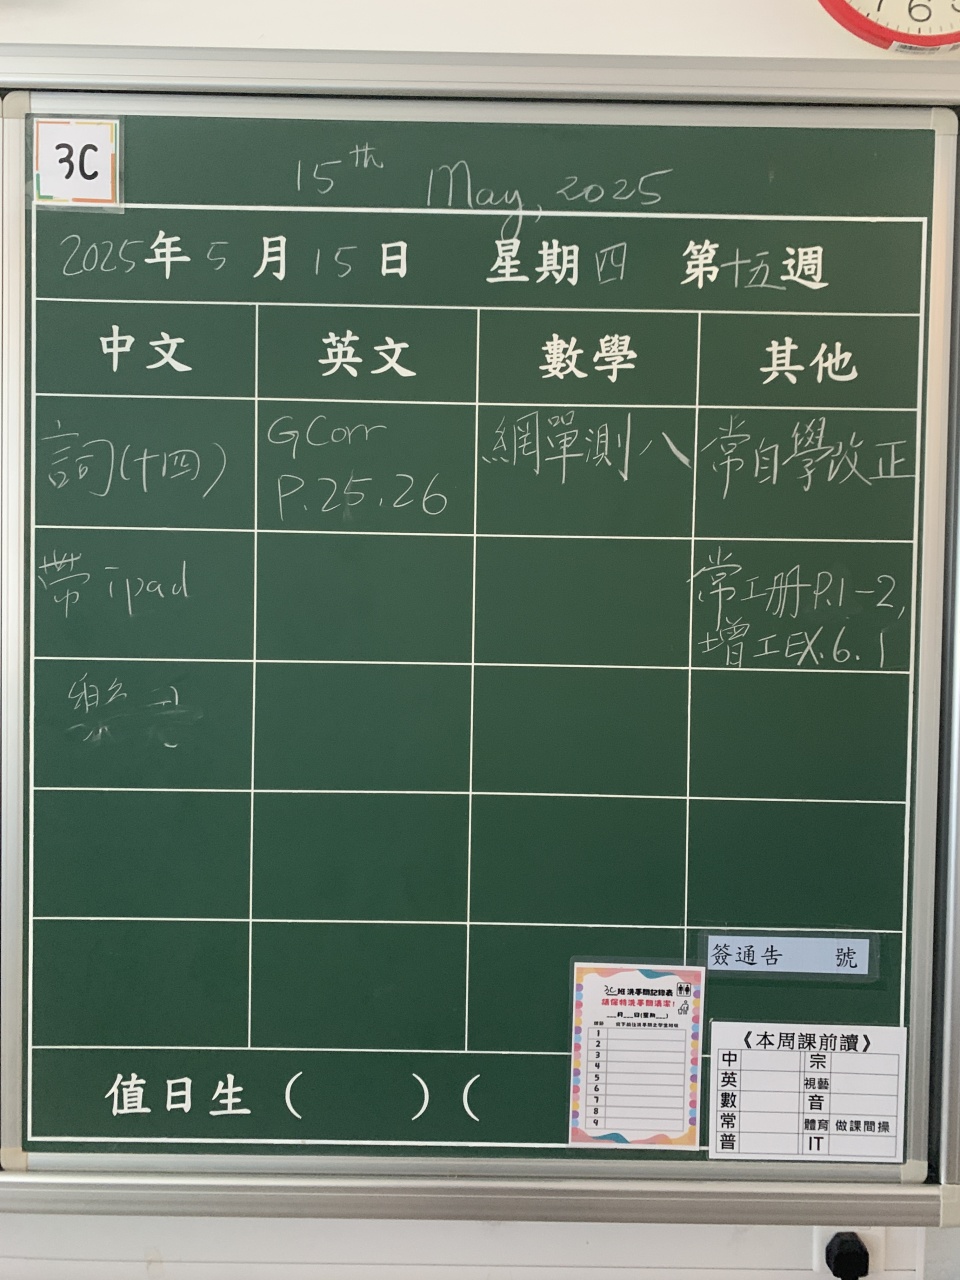 3C
15th May, 2025
2025年5月15日 星期四 第十五週
中文 英文 數學 其他
詞(十四)
GCorr
P.25,26
網單測八
常自學改正
帶ipad
常工册P.1-2,
增工EX.6.1
簽通告 號
3C班洗手間記錄表
請保持洗手間清潔!
___月___日(星期___)
1
2
3
4
5
6
7
8
9
《本周課前讀》
中 宗
英 視藝
數 音
常 體育 做課間操
普 IT
值日生 ( ) (
7 6 5